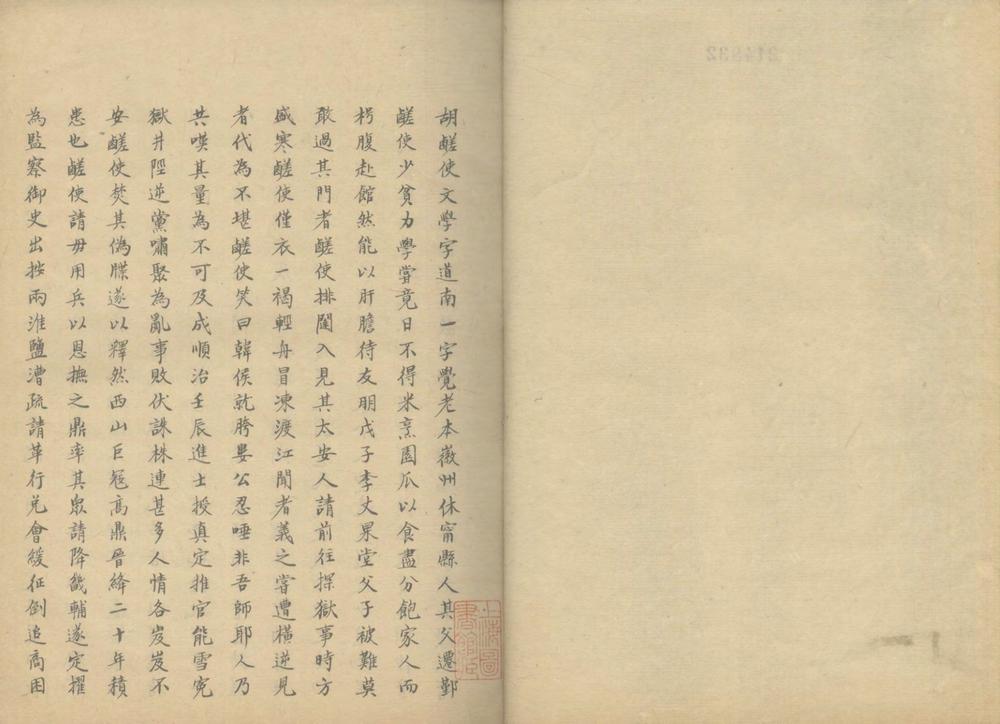 胡鹺使文學字道南一字覺老本徽州休甯縣人其父遷鄞
鹺使少貧力學嘗竟日不得米烹園瓜以食盡分飽家人而
枵腹赴館然能以肝膽待友朋戊子李丈杲堂父子被難莫
敢過其門者鹺使排闥入見其太安人請前往探獄事時方
盛寒鹺使僅衣一褐輕舟冒凍渡江聞者義之嘗遭橫逆見
者代為不堪鹺使笑曰韓侯就胯婁公忍唾非吾師耶人乃
共嘆其量為不可及成順治壬辰進士授真定推官能雪冤
獄井陘逆黨嘯聚為亂事敗伏誅株連甚多人情各岌岌不
安鹺使焚其偽牒遂以釋然西山巨冦高鼎晉絳二十年積
患也鹺使請毋用兵以恩撫之鼎率其眾請降畿輔遂定擢
為監察御史出按兩淮鹽漕疏請革行兌會緩征倒追商困
上海圖書館藏
214932